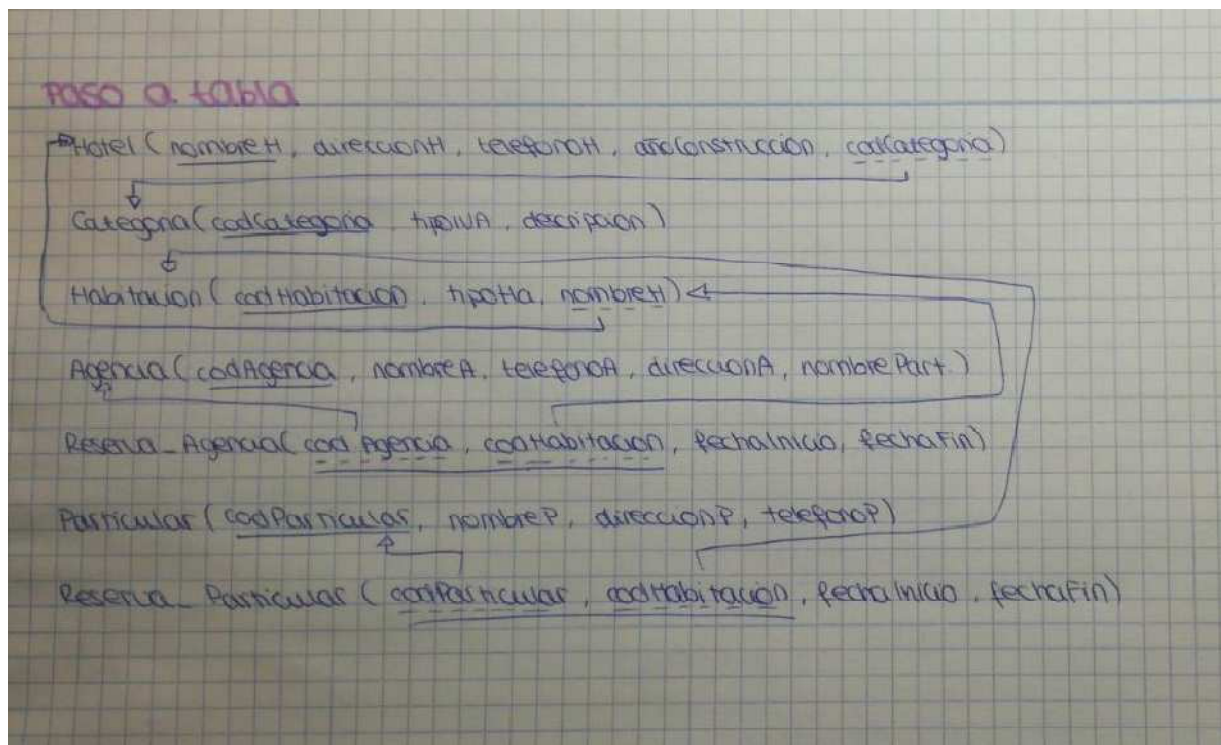 Paso a tabla
Hotel (nombreH, direccionH, telefonoH, añoConstruccion, codCategoria)
Categoria (codCategoria, tipoIVA, descripcion)
Habitacion (codHabitacion, tipoHa, nombreH)
Agencia (codAgencia, nombreA, telefonoA, direccionA, nombrePart.)
Reserva_Agencia (cod Agencia, codHabitacion, fechaInicio, fechaFin)
Particular (codParticular, nombreP, direccionP, telefonoP)
Reserva_Particular (codParticular, codHabitación, fechaInicio, fechaFin)